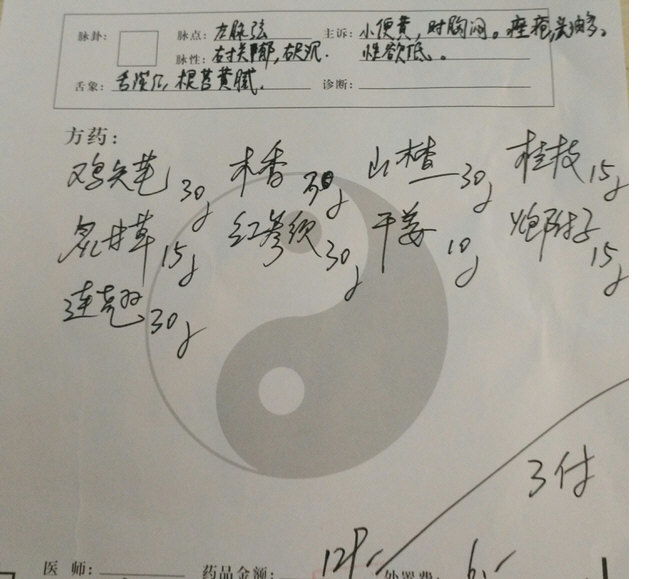 脉卦: 脉点: 左脉弦 主诉: 小便黄,时胸闷。痤疮,头油多。
脉性: 右关郁,尺沉. 性欲低。
舌象: 舌淡红,根苔黄腻. 诊断:
方药:
鸡矢藤30g 木香30g 山楂30g 桂枝15g
炙甘草15g 红参须30g 干姜10g 炮附子15g
连翘30g
3付
医 师: 药品金额: 129. 处置费: 6.